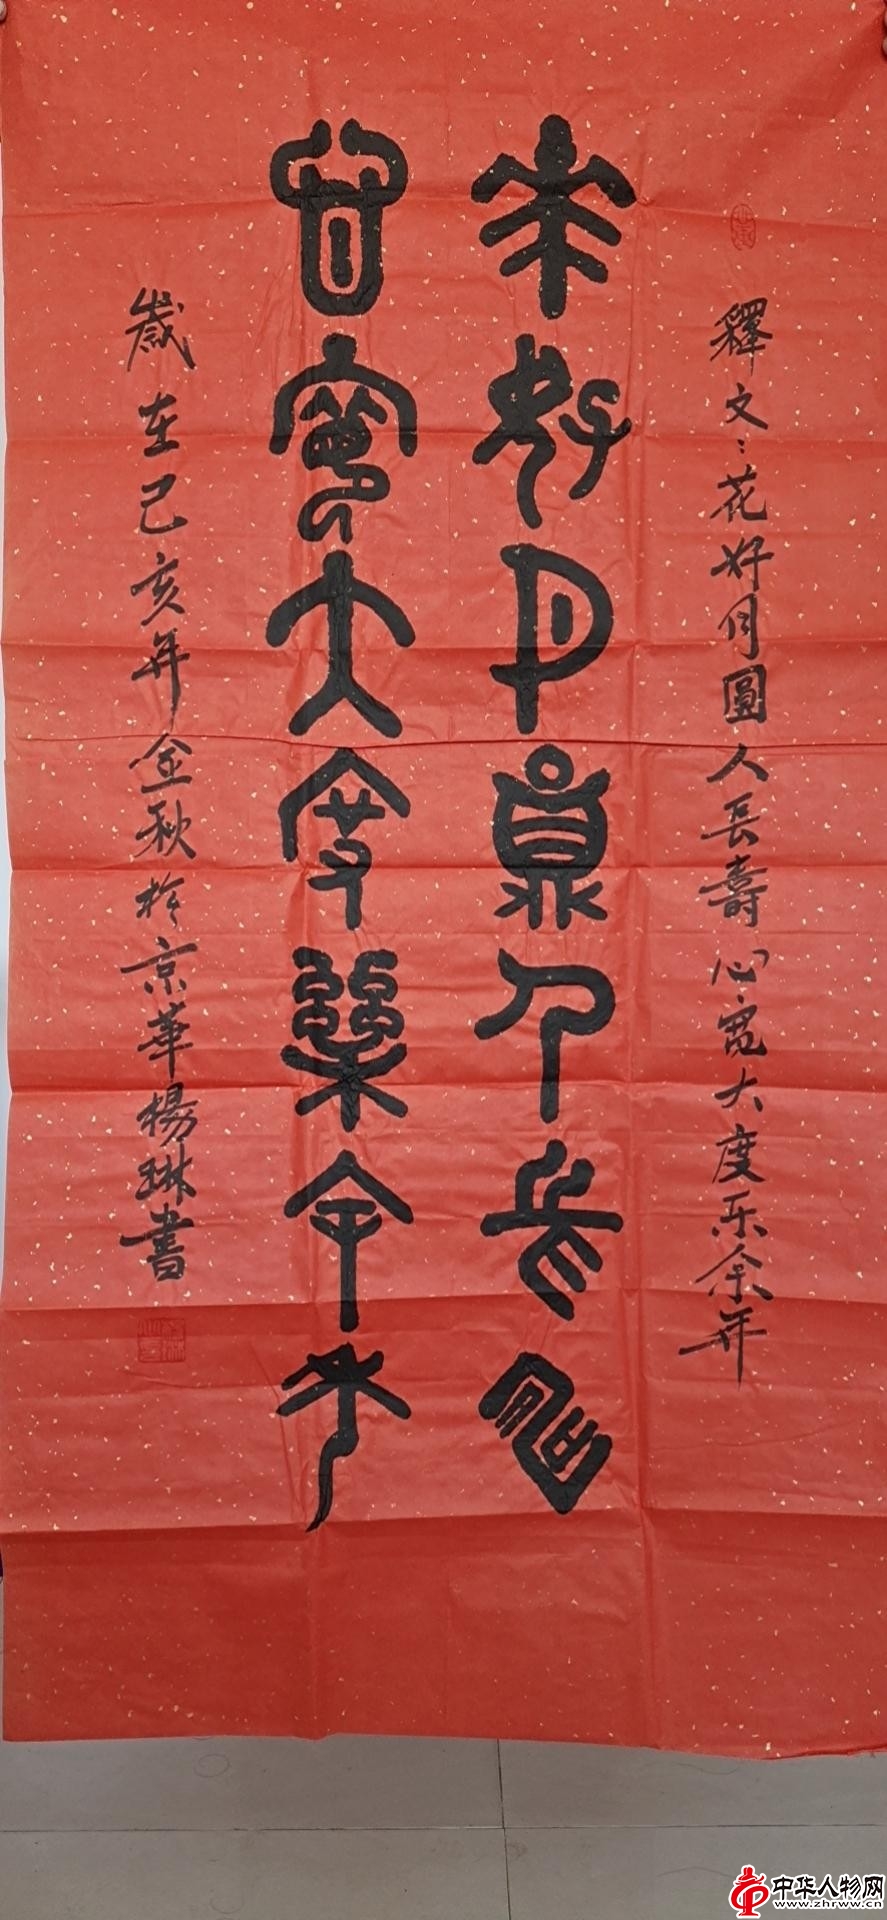 釋文：花好月圓人長壽心寬大度乐余年
花好月圓人長壽
心寬大度樂余年
歲在己亥年金秋於京華楊琳書
中华人物网
www.zhrww.cn